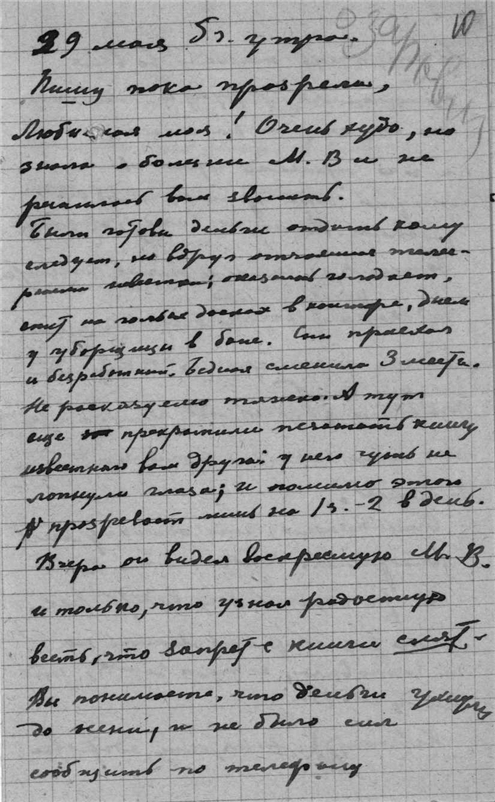 29 мая 5 ч. утра.
Пишу пока прозрела,
Любимая моя! Очень худо, но
знала о болезни М. В и не
решилась вам звонить.
Были готовы деньги отдать кому
следует, но вдруг отчаянная телег-
рамма невестки; оказалось голодает,
спит на голых досках в конторе, днем
у уборщицы в бане. Сын приехал
и безработный. Бедная сменила 3 места.
Не расскажуемо тяжело. А тут
еще прекратили печатать книгу
известного вам друга: у него чуть не
лопнули глаза; и помимо этого
прозревает лишь на 1 ч. - 2 в день.
Вчера он видел воскресшую М. В.
и только, что узнал радостную
весть, что запрет с книги снят -
Вы понимаете, что деньги
до жены, и не было сил
сообщить по телефону
10